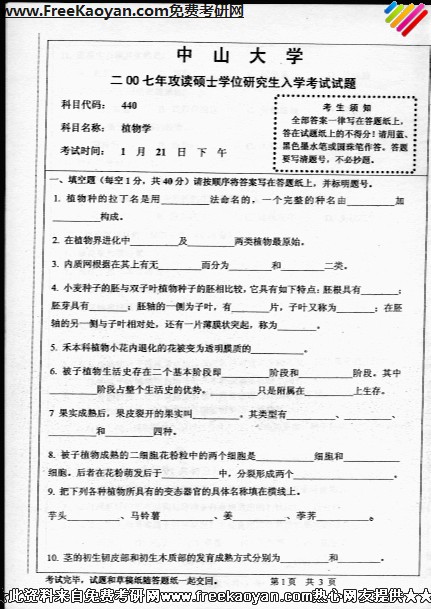 www.FreeKaoyan.com免费考研网
中 山 大 学
二00七年攻读硕士学位研究生入学考试试题
科目代码： 440
科目名称：植物学
考试时间： 1 月 21 日 下 午
考 生 须 知
全部答案一律写在答题纸上，
答在试题纸上的不得分！请用蓝、
黑色墨水笔或圆珠笔作答。答题
要写清题号，不必抄题。
一、填空题（每空1分，共40分）请按顺序将答案写在答题纸上，并标明题号。
1. 植物种的拉丁名是用_________法命名的，一个完整的种名由_________加
_________构成。
2. 在植物界进化中_________及_________两类植物最原始。
3. 内质网根据在其上有无_________而分为_________和_________二类。
4. 小麦种子的胚与双子叶植物种子的胚相比较，它具有如下特点：胚根具有_______；
胚芽具有_______；胚轴的一侧为子叶，有_______片，子叶又称为_______；在胚
轴的另一侧与子叶相对处，还有一片薄膜状突起，称为_______。
5. 禾本科植物小花内退化的花被变为透明膜质的_________。
6. 被子植物生活史存在二个基本阶段即_________阶段和_________阶段。其中
_________阶段占整个生活史的优势。_________只是附属在_________上生存。
7 果实成熟后，果皮裂开的果实叫_________。其类型有_________、_________、
_________和_________四种。
8. 被子植物成熟的二细胞花粉粒中的两个细胞是_________细胞和_________
细胞。后者在花粉萌发后于_________中，分裂形成两个_________。
9. 把下列各种植物所具有的变态器官的具体名称填在横线上。
芋头_________、马铃薯_________、姜_________、荸荠_________。
10. 茎的初生韧皮部和初生木质部的发育成熟方式分别为_________和_________。
考试完毕，试题和草稿纸随答题纸一起交回。 第 1 页 共 3 页
此资料来自免费考研网www.freekaoyan.com热心网友提供★★